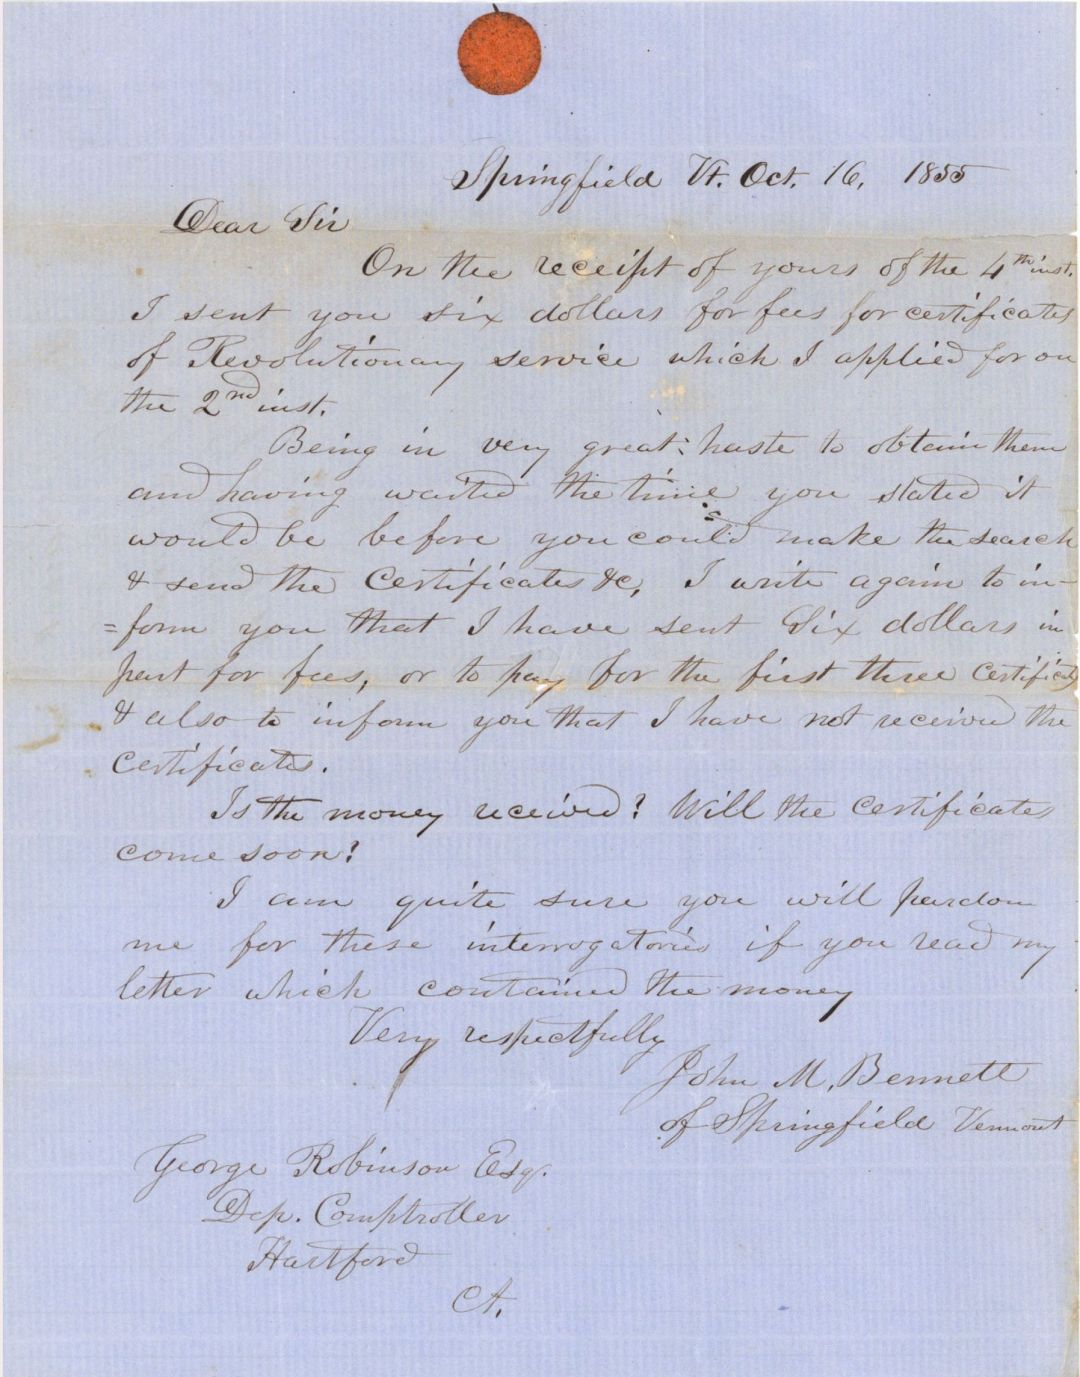 Springfield Vt. Oct. 16, 1855
Dear Sir
On the receipt of yours of the 4th inst.
I sent you six dollars for fees for certificates
of Revolutionary service which I applied for on
the 2nd inst.
Being in very great haste to obtain them
and having waited the time you stated it
would be before you could make the search
& send the Certificates &c, I write again to in-
=form you that I have sent Six dollars in
part for fees, or to pay for the first three Certificates
& also to inform you that I have not received the
Certificates.
Is the money received? Will the Certificates
come soon?
I am quite sure you will pardon
me for these interrogatories if you read my
letter which contained the money
Very respectfully
John M. Bennett
of Springfield Vermont
George Robinson Esq.
Dep. Comptroller
Hartford
Ct.